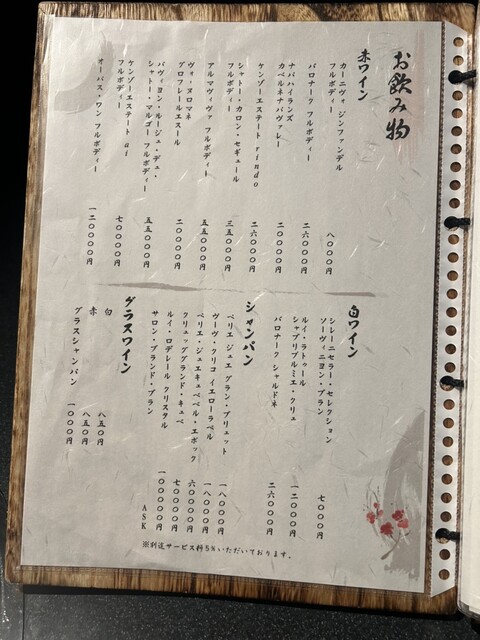 お飲み物
赤ワイン
カーニヴォ ジンファンデル
フルボディー 八〇〇〇円
バロナーク フルボディー 二六〇〇〇円
ナパハイランズ
カベルネナパヴァレー 二〇〇〇〇円
ケンゾーエステート rindo 二六〇〇〇円
シャトー・カロン・セギュール
フルボディー 三五〇〇〇円
アルマヴィヴァ フルボディー 五五〇〇〇円
ヴォーヌロマネ
グロフレールエスール 二〇〇〇〇円
パヴィヨン・ルージュ・デュ・
シャトー・マルゴー フルボディー 五五〇〇〇円
ケンゾーエステート ai
フルボディー 七〇〇〇〇円
オーパス・ワン フルボディー 一二〇〇〇〇円
白ワイン
シレーニセラー・セレクション
ソーヴィニヨン・ブラン 七〇〇〇円
ルイ・ラトゥール
シャブリプルミエ・クリュ 一二〇〇〇円
バロナーク シャルドネ 二六〇〇〇円
シャンパン
ペリエ ジュエ グラン・ブリュット 一八〇〇〇円
ヴーヴ・クリコ イエローラベル 一八〇〇〇円
ペリエ・ジュエキュベベル・エポック 六〇〇〇〇円
クリュッググランド・キュベ 七〇〇〇〇円
ルイ・ロデレール クリスタル 一〇〇〇〇〇円
サロン・ブランド・ブラン ASK
グラスワイン
白 八五〇円
赤 八五〇円
グラスシャンパン 一〇〇〇円
※別途サービス料5%いただいております。